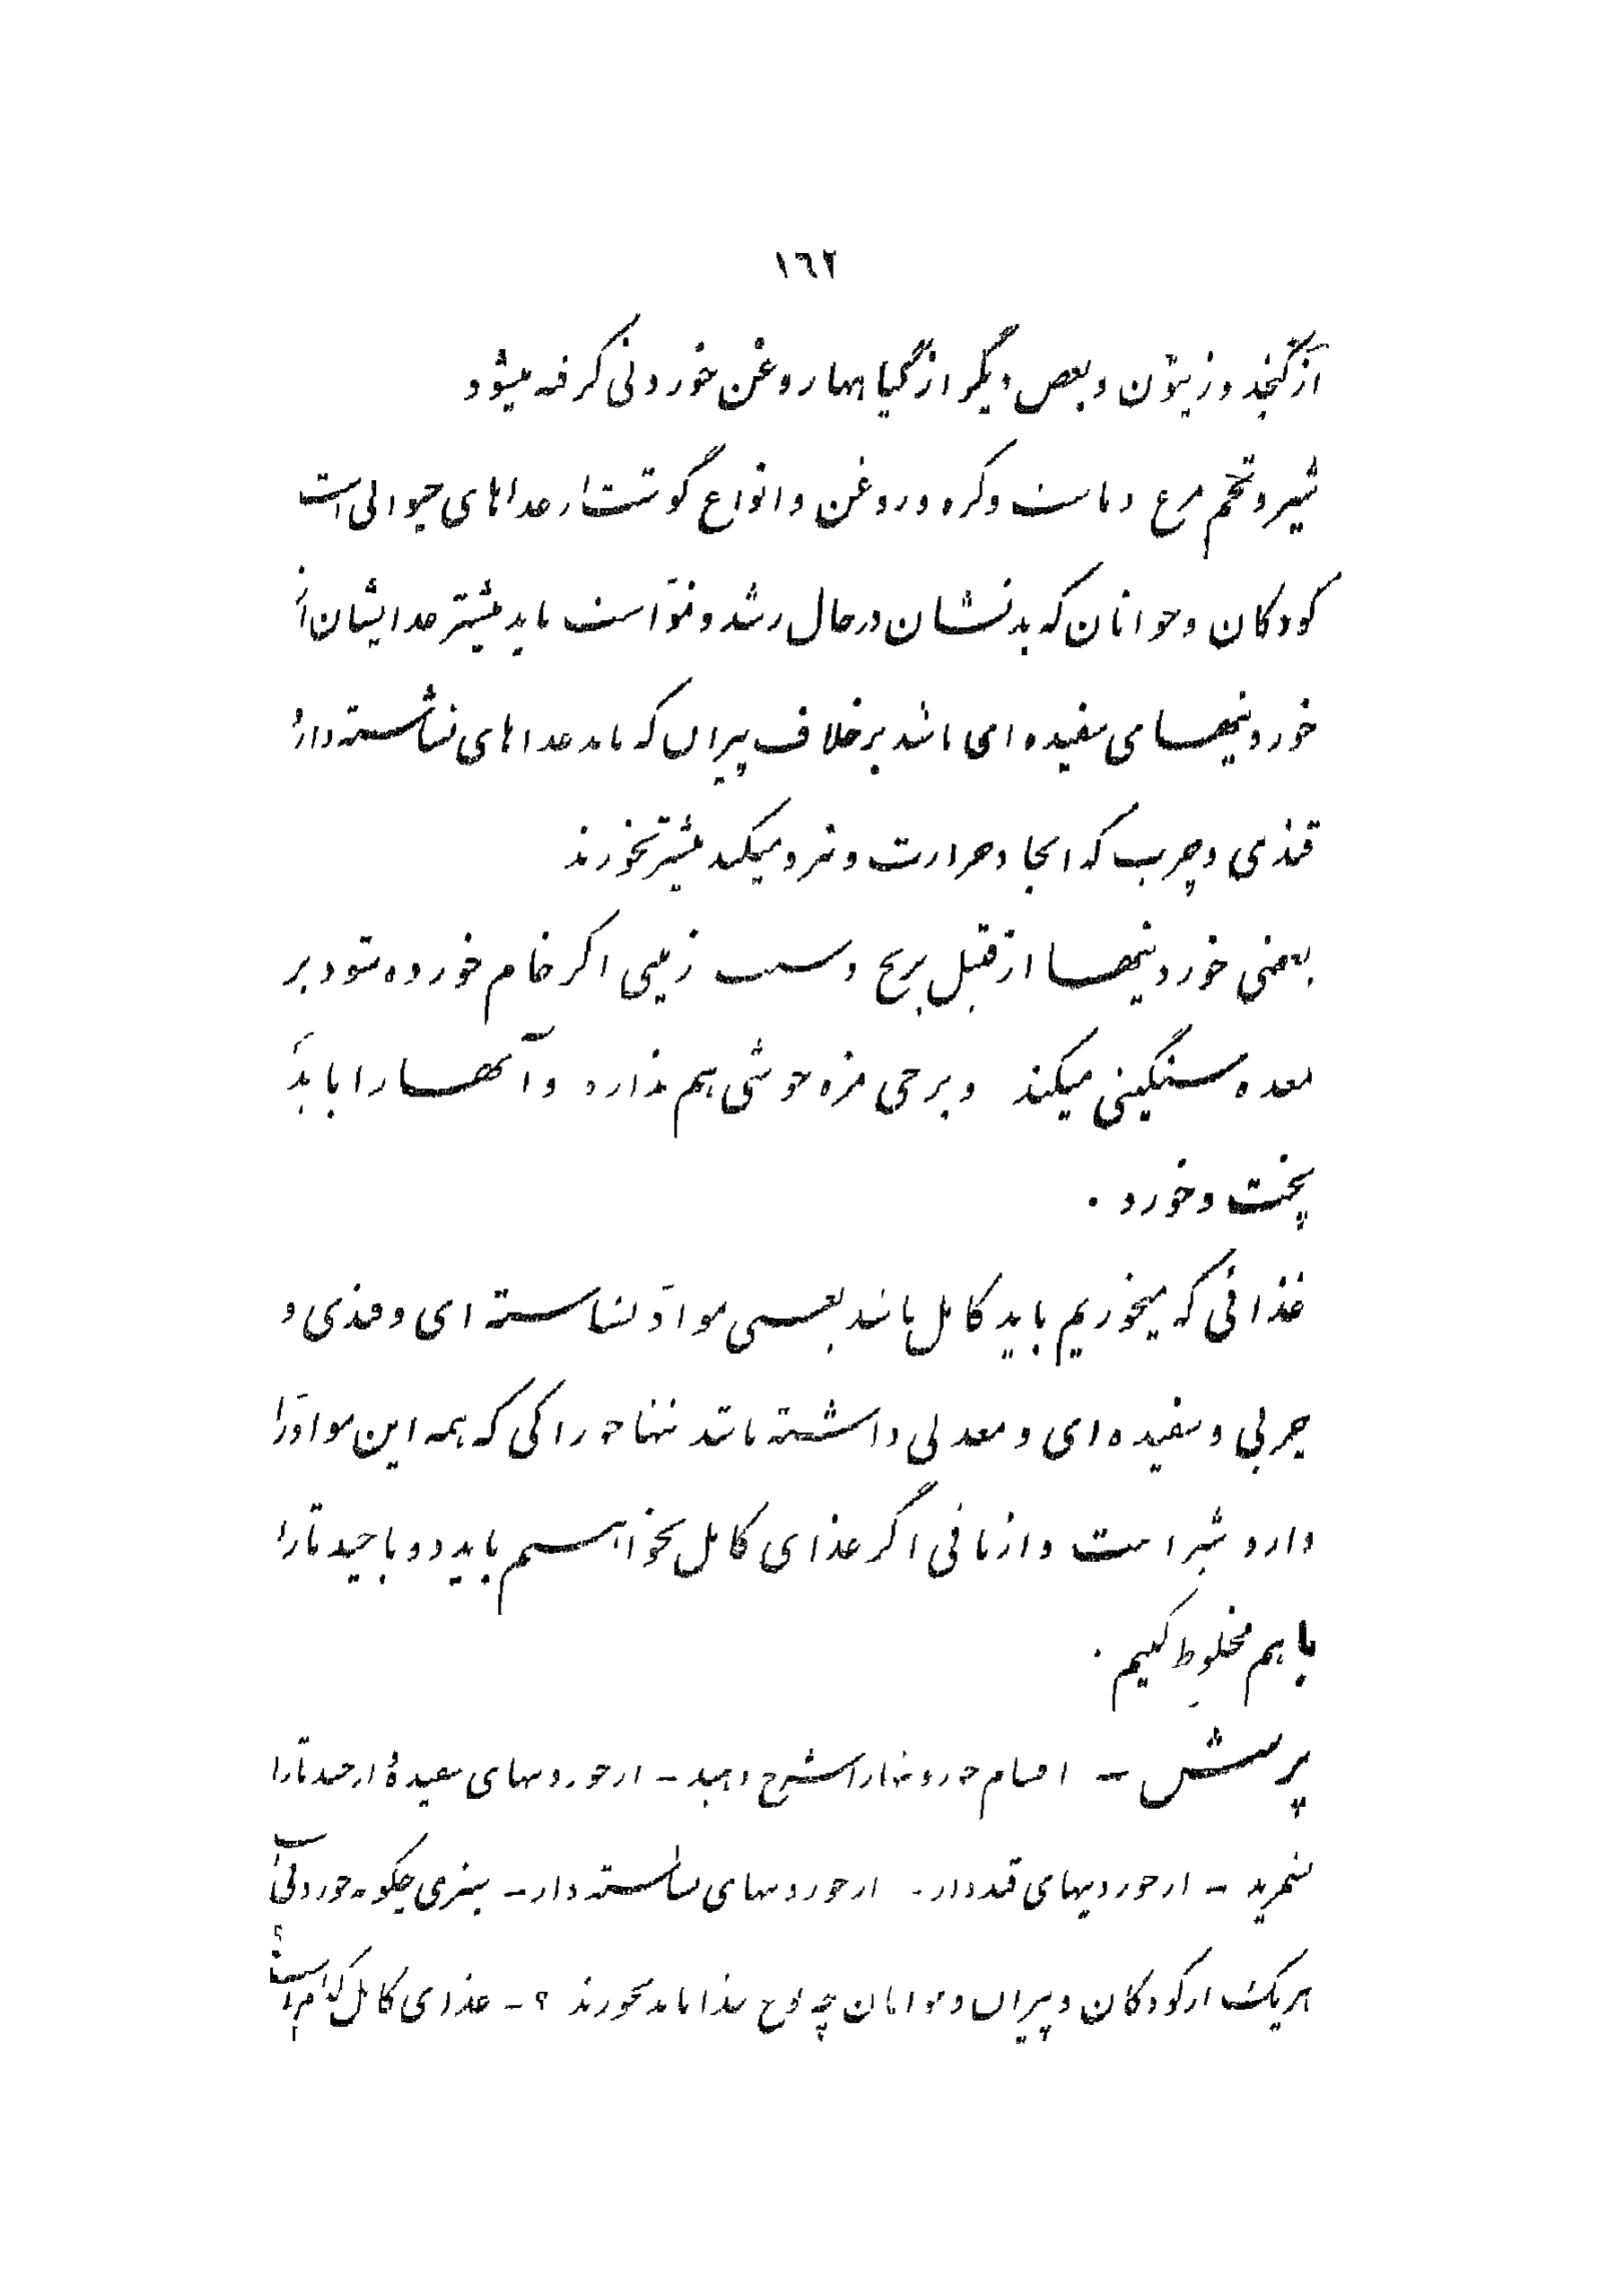 ١٦٢
از کنجد و زیتون و بعض دیگر از گیاهها روغن خوردنی گرفته میشود
شیر و تخم مرغ و ماست و کره و روغن و انواع گوشت از غذاهای حیوانی است
کودکان و جوانان که بدنشان در حال رشد و نموّ است باید بیشتر غذایشان از
خوردنیهای سفیده‌ای باشد برخلاف پیران که باید غذاهای نشاسته‌دار و
قندی و چرب که ایجاد حرارت و نیرو میکند بیشتر بخورند
بعضی خوردنیها از قبیل برنج و سیب زمینی اگر خام خورده شود بر
معده سنگینی میکند و برخی مزه خوشی هم ندارد و آنها را باید
پخت و خورد .
غذائی که میخوریم باید کامل باشد یعنی موادّ نشاسته‌ای و قندی و
چربی و سفیده‌ای و معدنی داشته باشد تنها خوراکی که همه این موادّ را
دارد شیر است و از باقی اگر غذای کامل بخواهیم باید دو یا چند تا را
با هم مخلوط کنیم .
پرسش - اقسام خوردنیها را شرح دهید - از خوردنیهای سفیدهٔ ارچند تا را
بشمرید - از خوردنیهای قنددار - از خوردنیهای نشاسته دار - سبزی چگونه خوردنی است
هریک از کودکان و پیران و جوانان چه نوع غذا باید بخورند ؟ - غذای کامل کدام است ؟